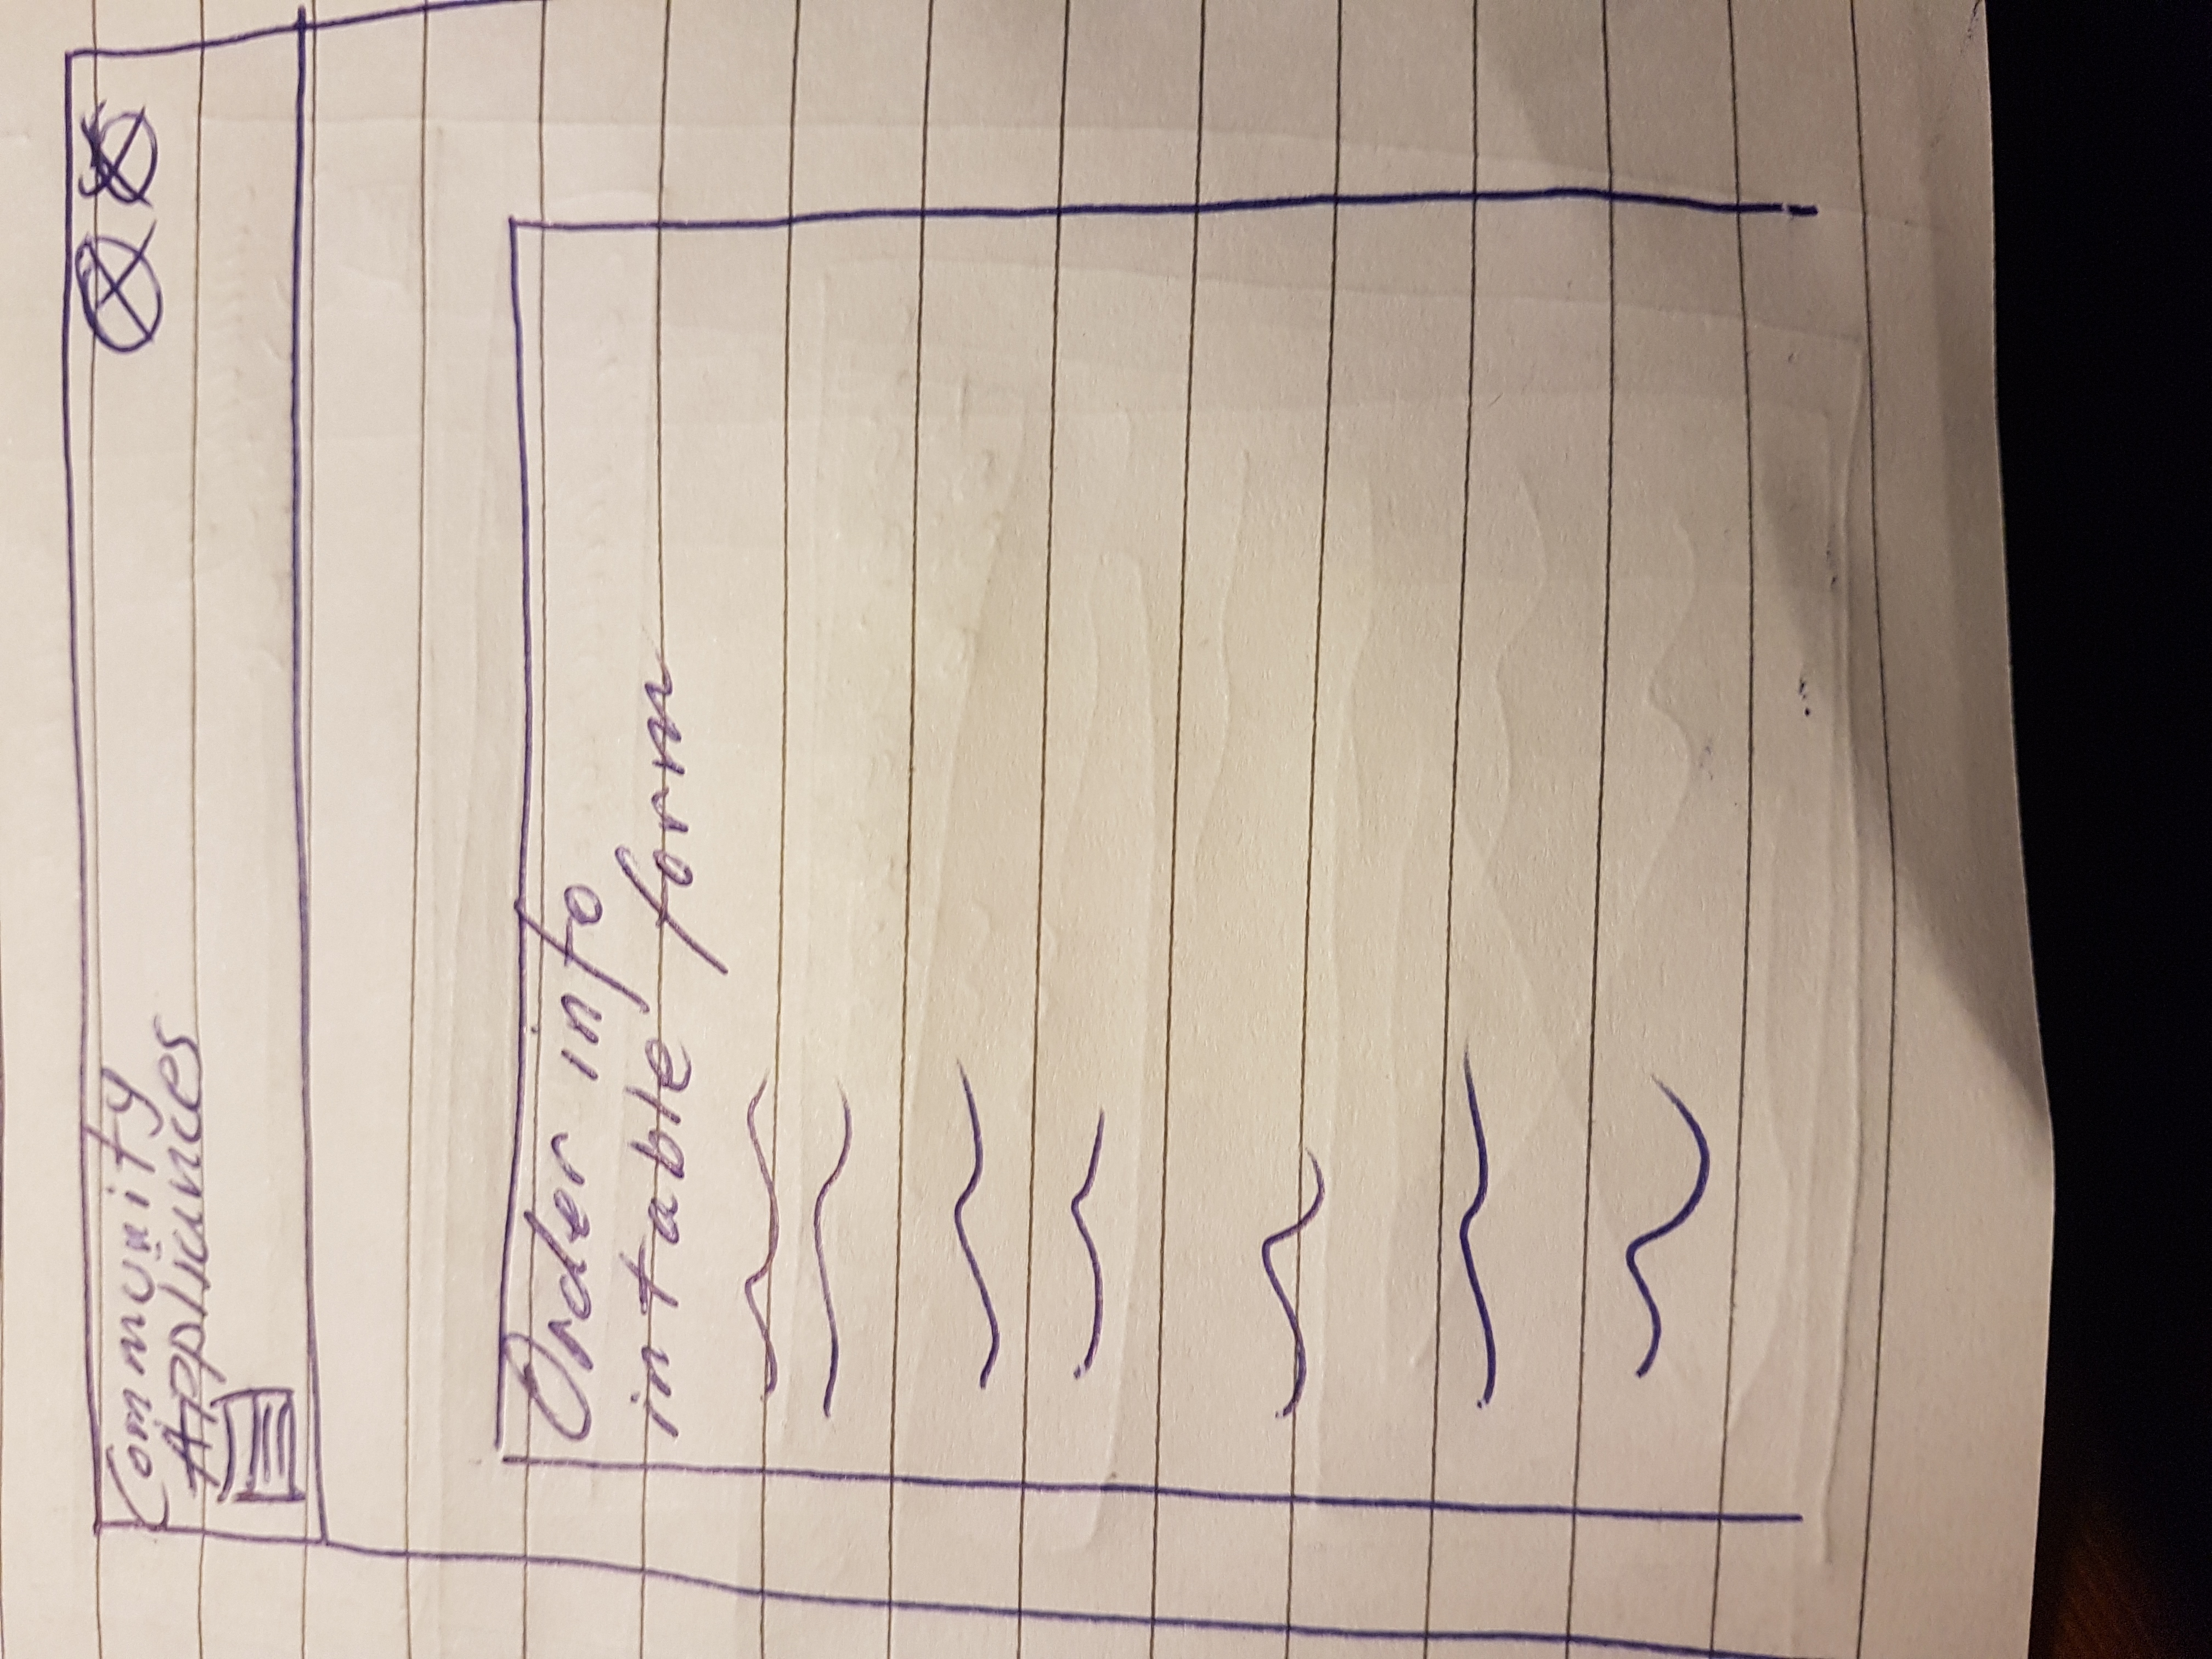 Community
Appliances
Order info
in table form